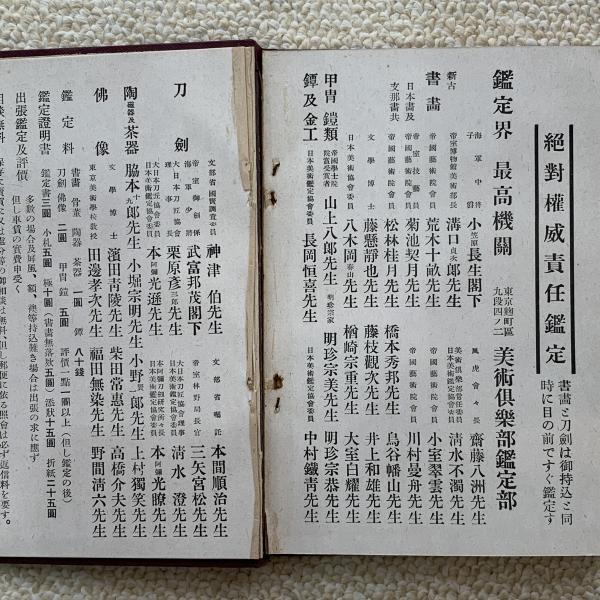 絶對權威責任鑑定
書畫と刀劍は御持込と同
時に目の前ですぐ鑑定す
鑑定界 最高機關
東京麴町區
九段四ノ二
美術俱樂部鑑定部
海軍中將
子
小笠原長生閣下
風虎會々長
齋藤八洲先生
新古
書畫
帝室博物館美術部長
溝口禎次郎先生
美術俱樂部常任委員
日本美術鑑定協會委員
清水不濁先生
帝國藝術院會員
荒木十畝先生
帝國藝術院會員
小室翠雲先生
日本畫及
支那畫共
帝室技藝員
帝國藝術院會員
菊池契月先生
帝國藝術院會員
川村曼舟先生
帝國藝術院會員
松林桂月先生
橋本秀邦先生
島谷幡山先生
文學博士
藤懸靜也先生
藤枝觀次先生
井上和雄先生
日本美術院會員
八木岡春山先生
楢崎宗重先生
大室白耀先生
甲冑 鎧類
帝國學士院
院賞受賞者
山上八郎先生
明珍宗家
明珍宗美先生
明珍宗恭先生
鐔及金工
日本美術鑑定協會委員
長岡恒喜先生
日本美術鑑定協會委員
中村鐵靑先生
刀劍
文部省國寶調査委員
神津伯先生
文部省囑託
本間順治先生
帝室御劍係
海軍少將
武富邦茂閣下
帝室林野局長官
三矢宮松先生
大日本刀匠協會
理事長
栗原彥三郎先生
大日本刀匠協會理事
日本美術鑑定協會委員
清水澄先生
大日本刀匠協會委員
日本美術鑑定協會委員
本阿彌光遜先生
本阿彌刀劍研究所々長
日本美術鑑定協會委員
本阿彌光瞭先生
陶磁器及茶器
脇本十九郎先生
小堀宗明先生
小野賢一郎先生
上村獨笑先生
佛像
文學博士
濱田靑陵先生
柴田常惠先生
高橋介夫先生
東京美術學校敎授
田邊孝次先生
福田無染先生
野間淸六先生
鑑定料
書畫 骨董 陶器 茶器 一圓 鐔 八十錢
刀劍 佛像 二圓 甲冑 鎧 五圓 評價一點 一圓以上(但し鑑定の後)
鑑定證明書
鑑定書三圓 小札五圓 極十圓(書畫無落款五圓)添狀十五圓 折紙二十五圓
出張鑑定及評價
多數の場合及屛風、額、襖等持込難き場合は出張の求に應ず
但し車賃の實費申受く